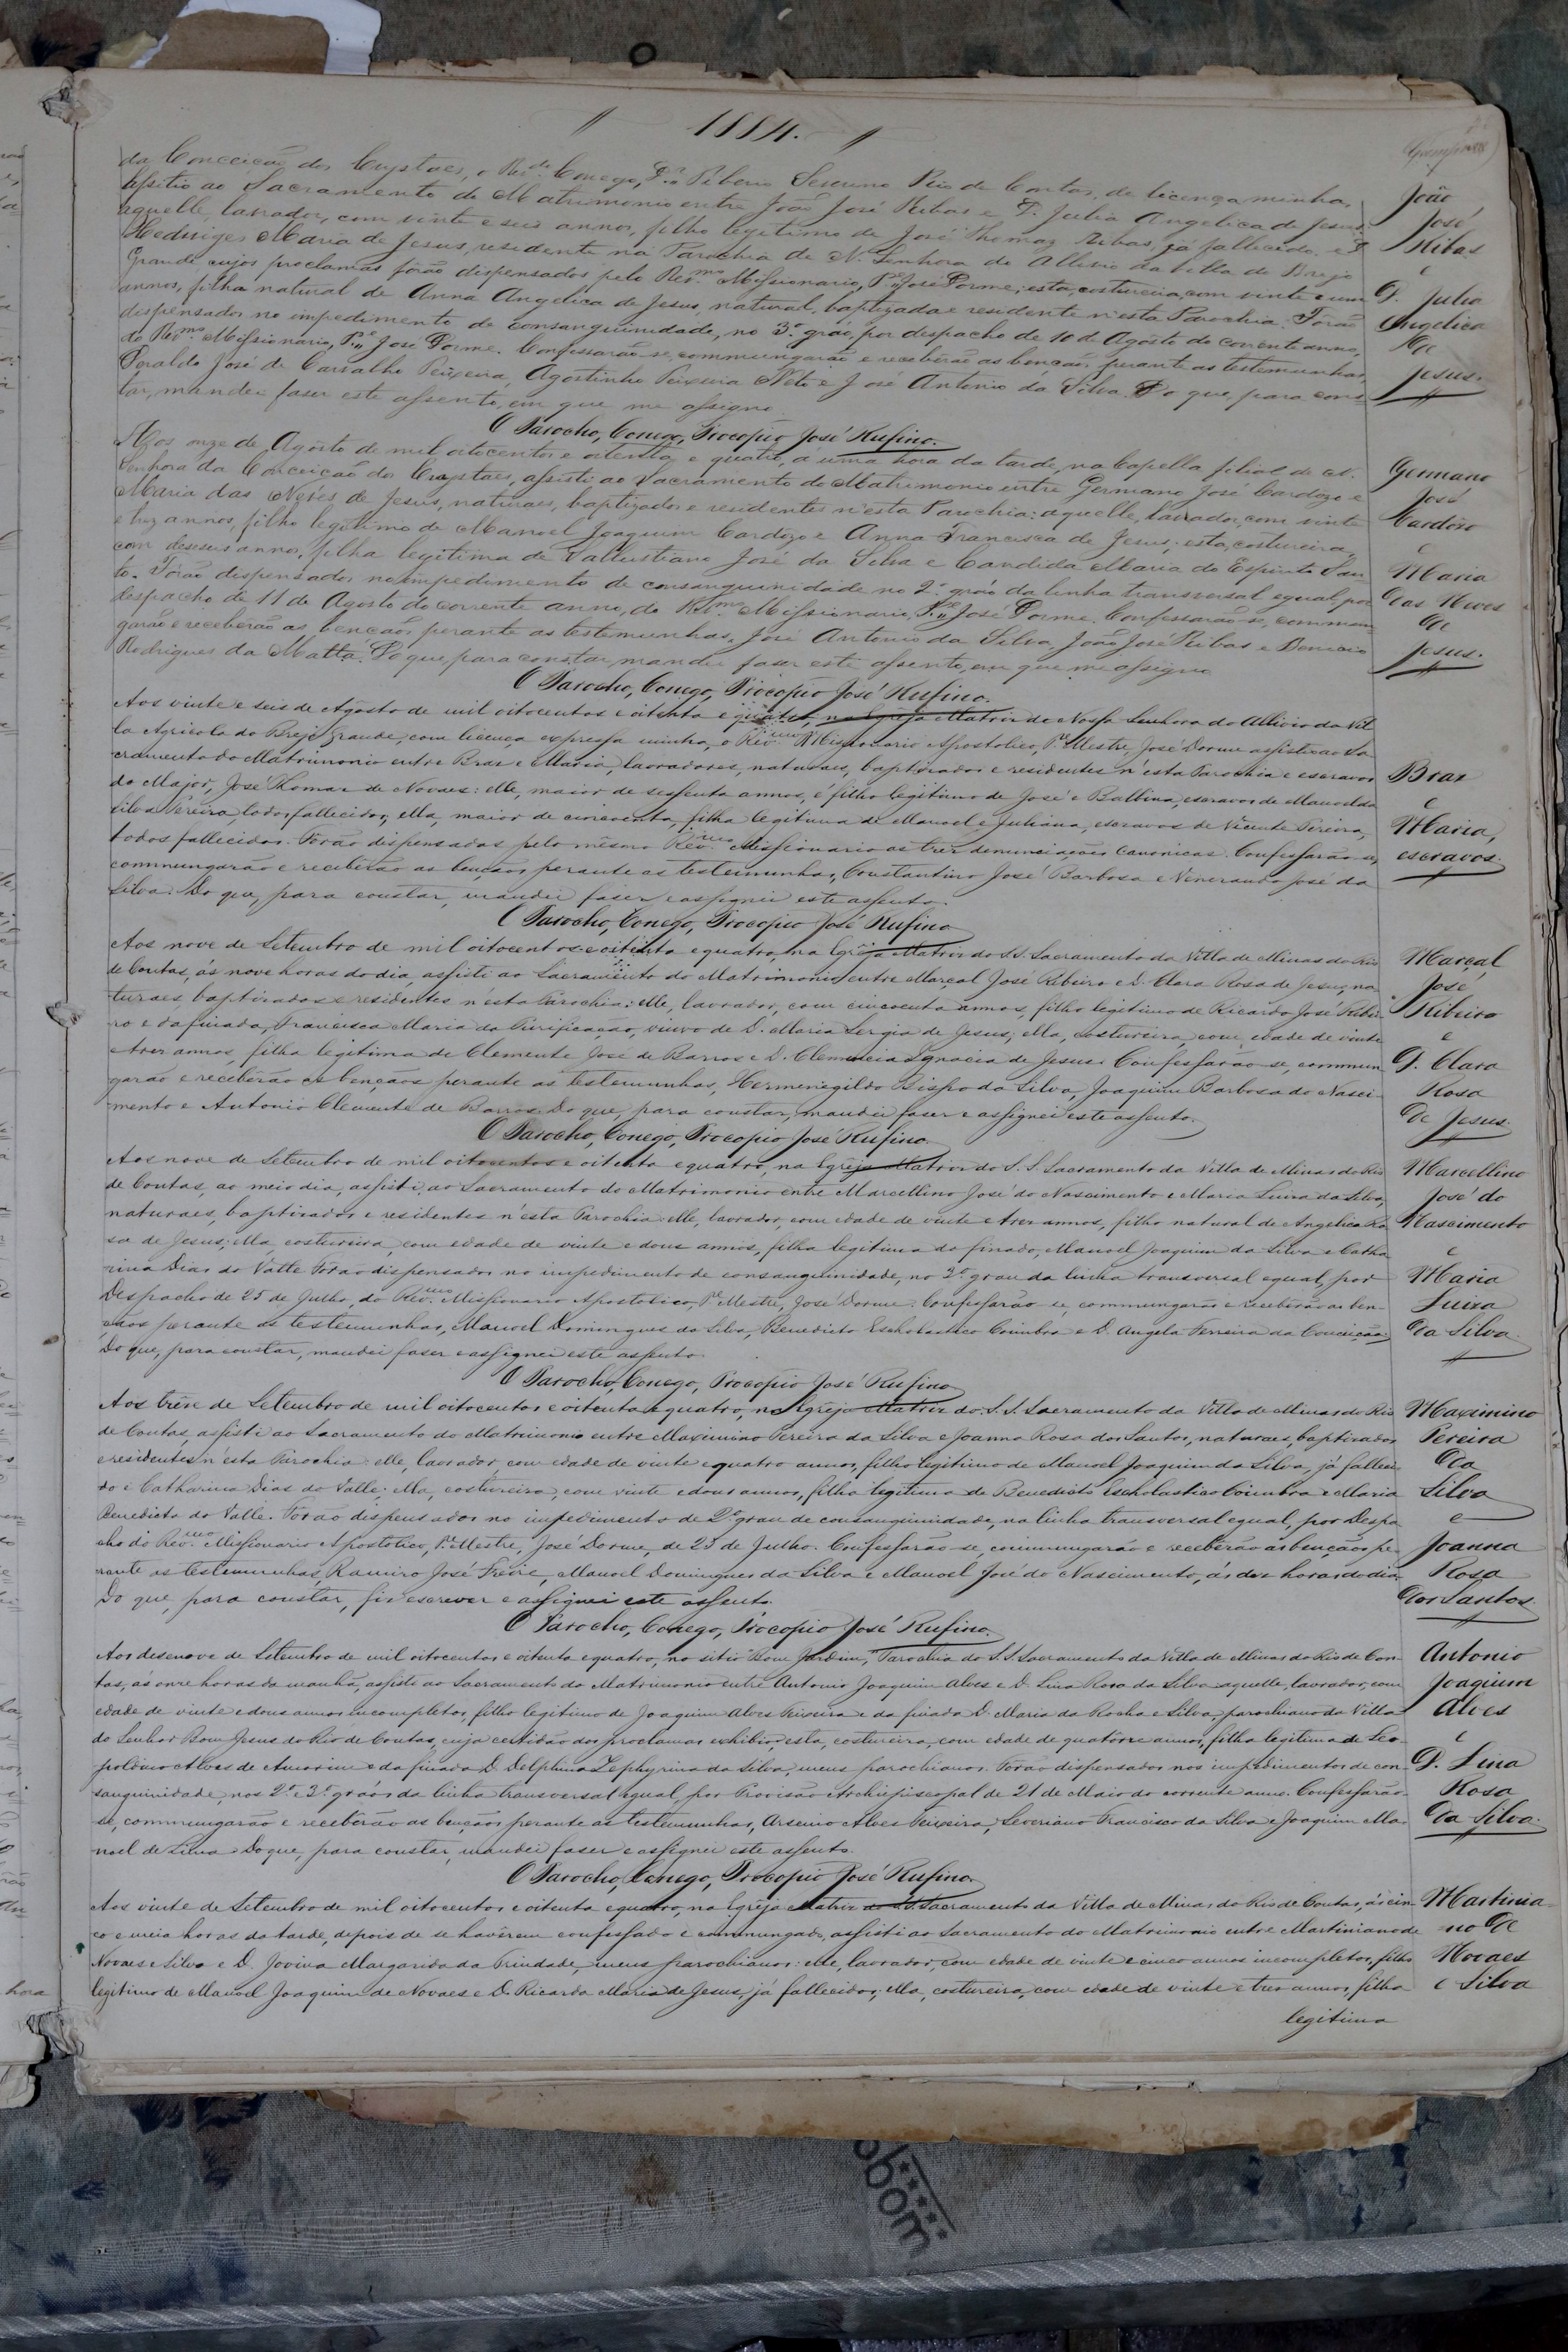 1884.
da Conceição dos Crystaes, o Rev.do Conego, Liberio Severino Rio de Contas, de licença minha,
assistio ao Sacramento do Matrimonio entre João José Ribas e D. Julia Angelica de Jesus:
aquelle, lavrador, com vinte e seis annos, filho legitimo de José Thomaz Ribas, já fallecido, e D.
Hedwiges Maria de Jesus, residente na Parochia de N. Senhora do Allivio da Villa do Brejo
Grande cujos proclamas fôrão dispensados pelo Rev.mo Missionario, P.e José Dorme; esta, costureira, com vinte e um
annos, filha natural de Anna Angelica de Jesus, natural, baptizada e residente n'esta Parochia. Forão
dispensados no impedimento de consanguinidade, no 3.º gráo, por despacho de 10 de Agosto do corrente anno,
do Rev.mo Missionario, P.e José Dorme. Confessarão-se, commungarão e receberão as bençãos, perante as testemunhas,
José de Carvalho Teixeira, Agostinho Teixeira Neto e José Antonio da Silva. Do que, para cons
tar, mandei faser este assento, em que me assigno.
João
José
Ribas
e
D. Julia
Angelica
de
Jesus.
O Parocho, Conego, Procopio José Rufino.
Aos onze de Agosto de mil oitocentos e oitenta e quatro, á uma hora da tarde, na Capella filial de N.
Senhora da Conceição dos Crystaes, assisti ao Sacramento do Matrimonio entre Germano José Cardozo e
Maria das Neves de Jesus, naturaes, baptizados e residentes n'esta Parochia: aquelle, lavrador, com vinte
e trez annos, filho legitimo de Manoel Joaquim Cardozo e Anna Francisca de Jesus; esta, costureira,
com deseseis annos, filha legitima de Sallustiano José da Silva e Candida Maria do Espirito San
to. Fôrão dispensados no impedimento de consanguinidade no 2.º gráo da linha transversal egual, por
despacho de 11 de Agosto do corrente anno, do Rv.mo Missionario, P.e José Dorme. Confessarão-se, commun
garão e receberão as bençãos perante as testemunhas, José Antonio da Silva, João José Ribas e
Rodrigues da Matta. Do que, para constar, mandei faser este assento, em que me assigno.
Germano
José
Cardôso
e
Maria
das Neves
de
Jesus.
O Parocho, Conego, Procopio José Rufino.
Aos vinte e seis de Agosto de mil oitocentos e oitenta e quatro, na Egreja Matriz de Nossa Senhora do Allivio da Vil
la Agricola do Brejo grande, com licença expressa minha, o Rev.mo Missionario Apostolico, P.e Mestre, José Dorme assistio ao Sa
cramento do Matrimonio entre Braz e Maria, lavradores, naturaes, baptizados e residentes n'esta Parochia e escravos
do Major, José Thomaz de Novaes: elle, maior de sessenta annos, é filho legitimo de José e Balbina, escravos de Manoel da
Silva Pereira, todos fallecidos, ella, maior de cincoenta, filha legitima de Manoel e Juliana, escravos de Vicente Pereira,
todos fallecidos. Forão dispensados pelo mêsmo Rev.mo Missionario as trez denunciações canonicas. Confessarão-se,
commungarão e receberão as bençãos perante as testemunhas, Constantino José Barbosa e Venerando José da
Silva. Do que, para constar, mandei faser e assignei este assento.
Braz
e
Maria,
escravos.
O Parocho, Conego, Procopio José Rufino
Aos nove de Setembro de mil oitocentos e oitenta e quatro, na Egreja Matriz do S.S. Sacramento da Villa de Minas do Rio
de Contas, ás nove horas do dia, assisti ao Sacramento do Matrimonio entre Marçal José Ribeiro e D. Clara Rosa de Jesus, na
turaes, baptizados e residentes n'esta Parochia: elle, lavrador, com cincoenta annos, filho legitimo de Ricardo José Ribei
ro e da finada, Francisca Maria da Purificação, viuvo de D. Maria Sergia de Jesus; ella, costureira, com edade de vinte
e trez annos, filha legitima de Clemente José de Barros e D. Clemencia Ignacia de Jesus. Confessarão-se, commun
garão e receberão as bençãos perante as testemunhas, Hermenegildo Bispo da Silva, Joaquim Barbosa do Nasci-
mento e Antonio Clemente de Barros. Do que, para constar, mandei faser e assignei este assento.
Marçal
José
Ribeiro
e
D. Clara
Rosa
de Jesus.
O Parocho, Conego, Procopio José Rufino.
Aos nove de Setembro de mil oitocentos e oitenta e quatro, na Egreja Matriz do S.S. Sacramento da Villa de Minas do Rio
de Contas, ao meio dia, assisti ao Sacramento do Matrimonio entre Marcellino José do Nascimento e Maria Luiza da Silva,
naturaes, baptizados e residentes n'esta Parochia: elle, lavrador, com edade de vinte e trez annos, filho natural de Angelica Ro
sa de Jesus; ella, costureira, com edade de vinte e dous annos, filha legitima do finado, Manoel Joaquim da Silva e Catha
rina Dias do Valle. Forão dispensados no impedimento de consanguinidade, no 2.º grau da linha transversal egual, por
Despacho de 25 de Julho, do Rev.mo Missionario Apostolico, P.e Mestre, José Dorme. Confessarão-se, commungarão e receberão as ben
çãos perante as testemunhas, Manoel Domingues da Silva, Benedicto Escholastico Coimbra e D. Angela Ferreira da Conceição.
Do que, para constar, mandei faser e assignei este assento.
Marcellino
José do
Nascimento
e
Maria
Luiza
da Silva.
O Parocho, Conego, Procopio José Rufino
Aos trêse de Setembro de mil oitocentos e oitenta e quatro, na Egreja Matriz do S.S. Sacramento da Villa de Minas do Rio
de Contas, assisti ao Sacramento do Matrimonio entre Maximino Pereira da Silva e Joanna Rosa dos Santos, naturaes, baptizados
e residentes n'esta Parochia: elle, lavrador, com edade de vinte e quatro annos, filho legitimo de Manoel Joaquim da Silva, já falleci
do e Catharina Dias do Valle; ella, costureira, com vinte e dous annos, filha legitima de Benedicto Escholastico Coimbra e Maria
Benedicta do Valle. Forão dispensados no impedimento de 2.º grau de consanguinidade, na linha transversal egual, por Despa
cho do Rev.mo Missionario Apostolico, P.e Mestre, José Dorme, de 25 de Julho. Confessarão-se, commungarão e receberão as bençãos pe-
rante as testemunhas, Ramiro José Freire, Manoel Domingues da Silva e Manoel José do Nascimento, ás dez horas do dia.
Do que, para constar, fiz escrever e assignei este assento.
Maximino
Pereira
da
Silva
e
Joanna
Rosa
dos Santos.
O Parocho, Conego, Procopio José Rufino.
Aos desenove de Setembro de mil oitocentos e oitenta e quatro, no sitio Bom Jardim, Parochia do S.S. Sacramento da Villa de Minas do Rio de Con-
tas, ás onze horas da manhã, assisti ao Sacramento do Matrimonio entre Antonio Joaquim Alves e D. Lina Rosa da Silva: aquelle, lavrador, com
edade de vinte e dous annos incompletos, filho legitimo de Joaquim Alves Teixeira e da finada D. Maria da Rocha e Silva, parochiano da Villa
do Senhor Bom Jesus do Rio de Contas, cuja certidão dos proclamas exhibio; esta, costureira, com edade de quatôrze annos, filha legitima de Leo-
poldino Alves de Amorim e da finada D. Delphina Zephyrina da Silva, meus parochianos. Forão dispensados nos impedimentos de con-
sanguinidade, nos 2.º e 3.º gráos da linha transversal egual, por Provisão Archiepiscopal de 21 de Maio do corrente anno. Confessarão-
se, commungarão e receberão as bençãos perante as testemunhas, Arsenio Alves Teixeira, Severiano Francisco da Silva e Joaquim Ma-
noel de Lima. Do que, para constar, mandei faser e assignei este assento.
Antonio
Joaquim
Alves
e
D. Lina
Rosa
da Silva.
O Parocho, Conego, Procopio José Rufino.
Aos vinte de Setembro de mil oitocentos e oitenta e quatro, na Egreja Matriz do S.S. Sacramento da Villa de Minas do Rio de Contas, ás cin
co e meia horas da tarde, depois de se havêrem confessado e commungado, assisti ao Sacramento do Matrimonio entre Martiniano de
Novaes e Silva e D. Jovina Margarida da Trindade, meus parochianos: elle, lavrador, com edade de vinte e cinco annos incompletos, filho
legitimo de Manoel Joaquim de Novaes e D. Ricarda Maria de Jesus, já fallecidos; ella, costureira, com edade de vinte e trez annos, filha
legitima
Martinia-
no de
Novaes
e Silva
hora